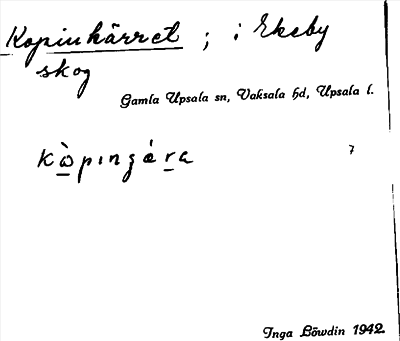 Kopinkärret ; i Ekeby
skog
Gamla Upsala sn, Vaksala hd, Upsala l.
kòpingéra
7
Inga Löwdin 1942.